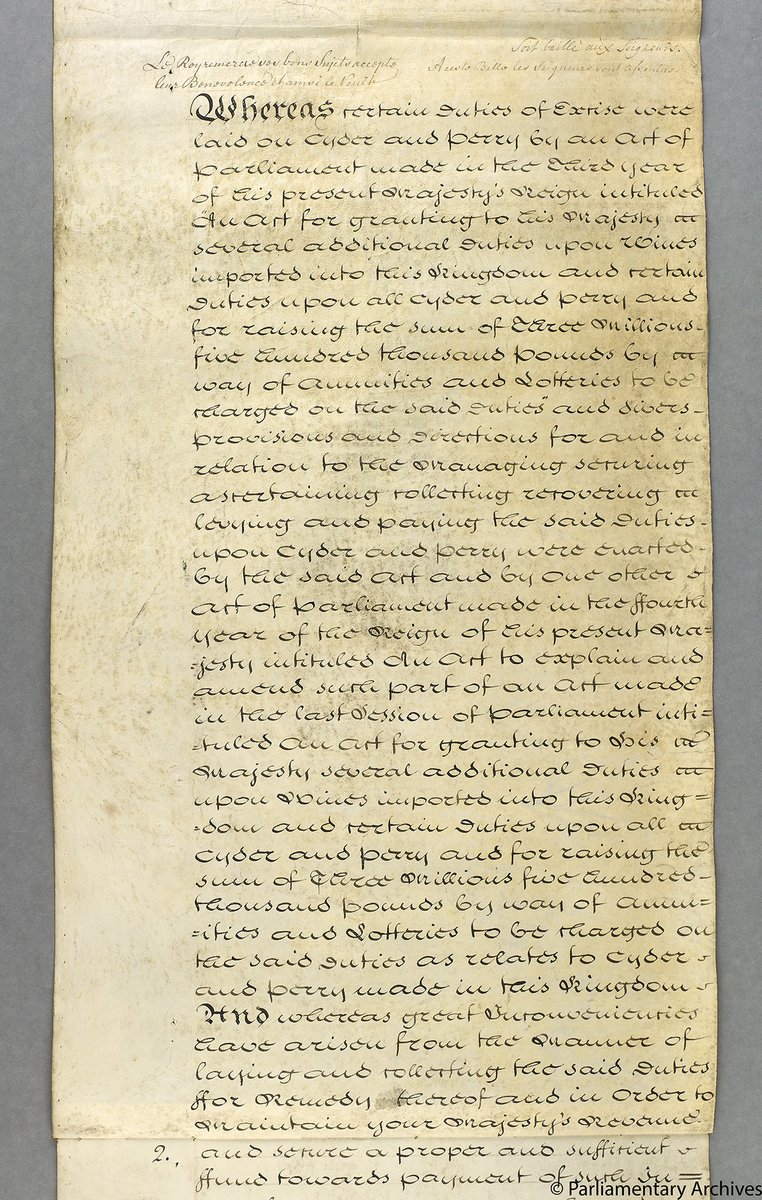 Soit baillé aux Seigneurs.
Le Roy remercie ses bons Sujets accepte
A ceste Bille les Seigneurs sont assentus
leur Benevolence et ainsi le Veult
Whereas certain Duties of Excise were
laid on Cyder and Perry by an Act of
Parliament made in the Third year
of his present Majesty's Reign intituled
An Act for granting to his Majesty
several additional Duties upon Wines
imported into this Kingdom and certain
Duties upon all Cyder and Perry and
for raising the sum of Three Millions
five hundred thousand Pounds by
way of Annuities and Lotteries to be
charged on the said Duties" and divers
provisions and Directions for and in
relation to the Managing securing
ascertaining collecting recovering
levying and paying the said Duties
upon Cyder and Perry were enacted
by the said Act and by One other
Act of Parliament made in the ffourth
year of the Reign of his present Ma=
=jesty intituled An Act to explain and
amend such part of an Act made
in the last Session of Parliament inti=
=tuled An Act for granting to His
Majesty several additional Duties
upon Wines imported into this King=
=dom and certain Duties upon all
Cyder and Perry and for raising the
sum of Three Millions five hundred
thousand pounds by way of Annu=
=ities and Lotteries to be charged on
the said Duties as relates to Cyder
and Perry made in this Kingdom
And whereas great Inconveniencies
have arisen from the Manner of
laying and collecting the said Duties
ffor Remedy thereof and in Order to
Maintain your Majesty's Revenue
2. and secure a proper and sufficient
ffund towards payment of such In=
© Parliamentary Archives